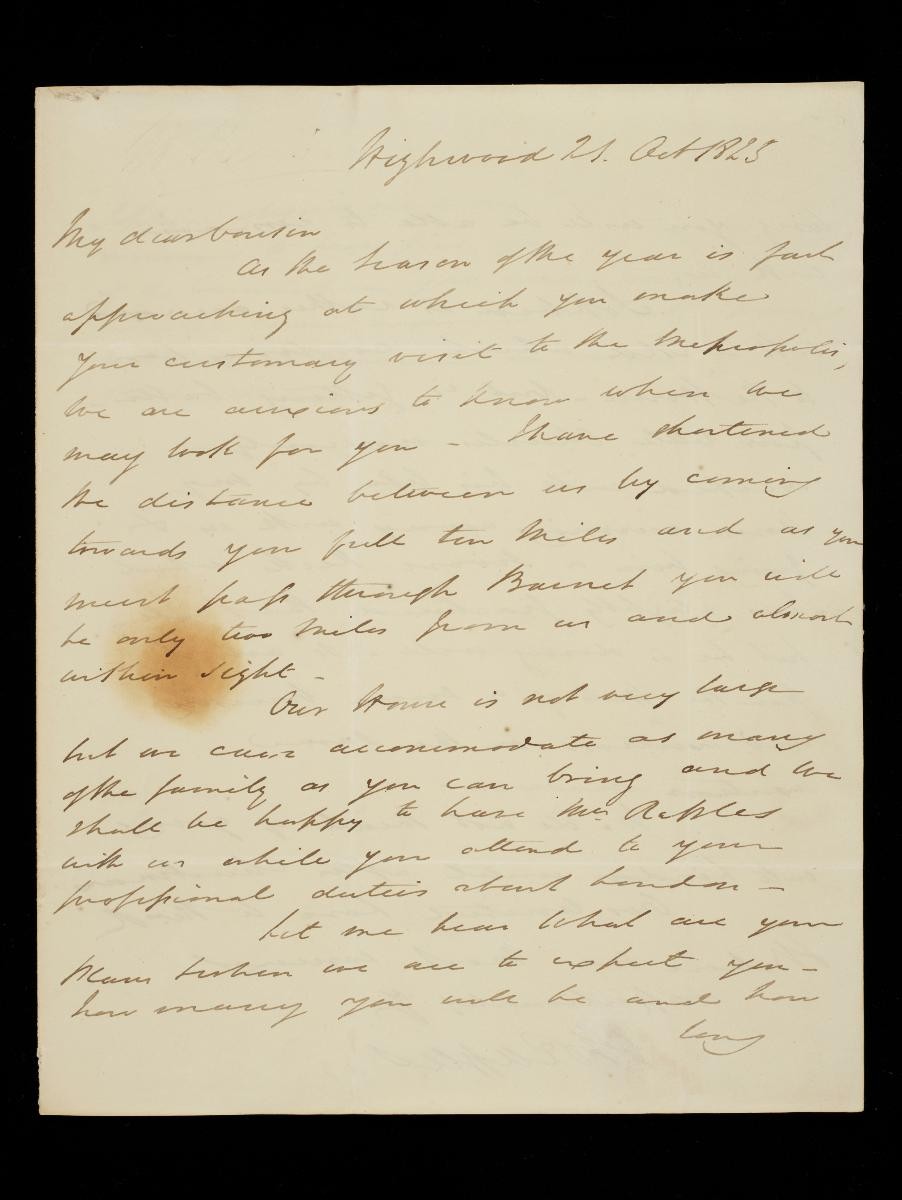 Highwood 21. Oct 1825
My dear Cousin
As the Season of the year is fast
approaching at which you make
your customary visit to the Metropolis,
We are anxious to know when we
may look for you – I have shortened
the distance between us by coming
towards you full ten Miles and as you
must pass through Barnet you will
be only two Miles from us and almost
within sight –
Our House is not very large
but we can accommodate as many
of the family as you can bring and we
shall be happy to have Mrs. Raffles
with us while you attend to your
professional duties about London –
Let me hear what are your
Plans & when we are to expect you –
how many you will be and how
long